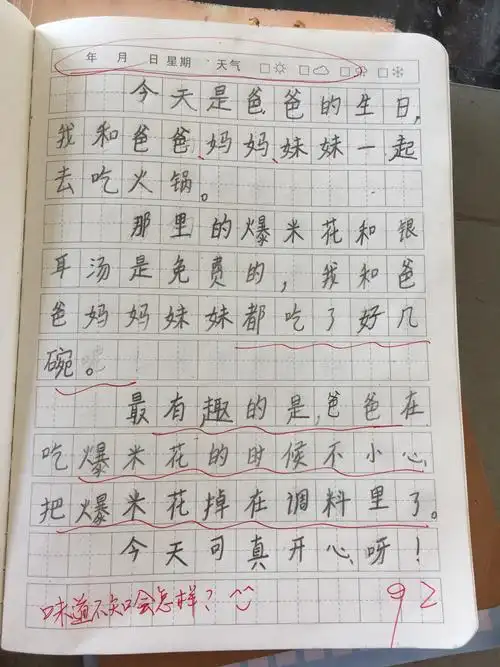 年 月 日 星期 天气
今天是爸爸的生日,
我和爸爸、妈妈、妹妹一起
去吃火锅。
那里的爆米花和银
耳汤是免费的,我和爸
爸妈妈妹妹都吃了好几
碗。
最有趣的是,爸爸在
吃爆米花的时候不小心
把爆米花掉在调料里了。
今天可真开心呀!
味道不知会怎样?
92